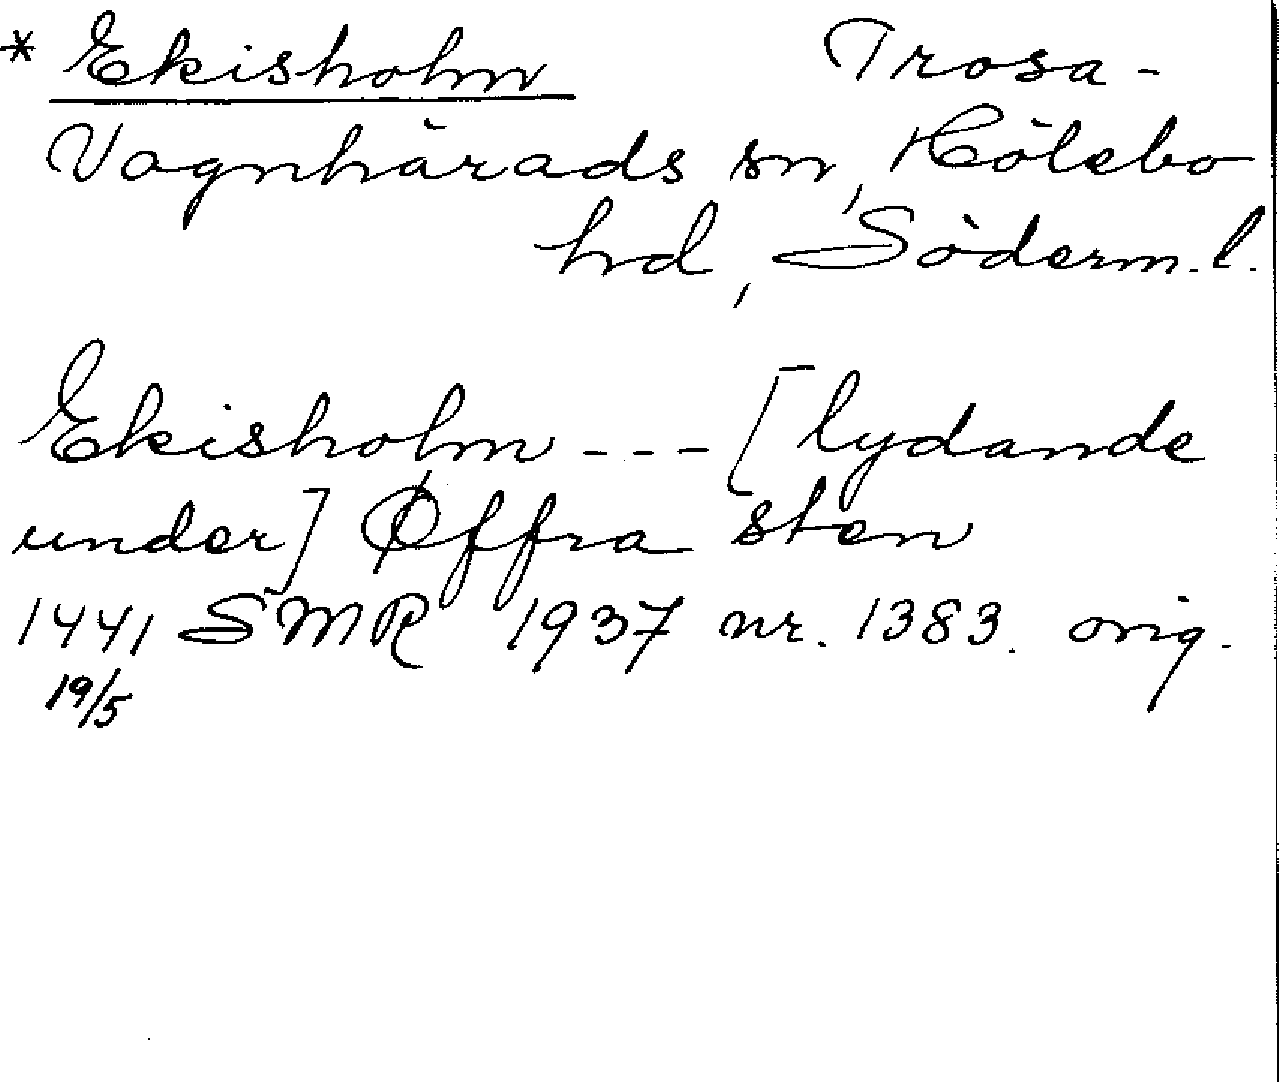 * Ekisholm Trosa-
Vagnhärads sn, Hölebo
hd, Söderm. l.
Ekisholm --- [lydande
under] Øffra sten
1441 SMR 1937 nr. 1383. orig.
19/5